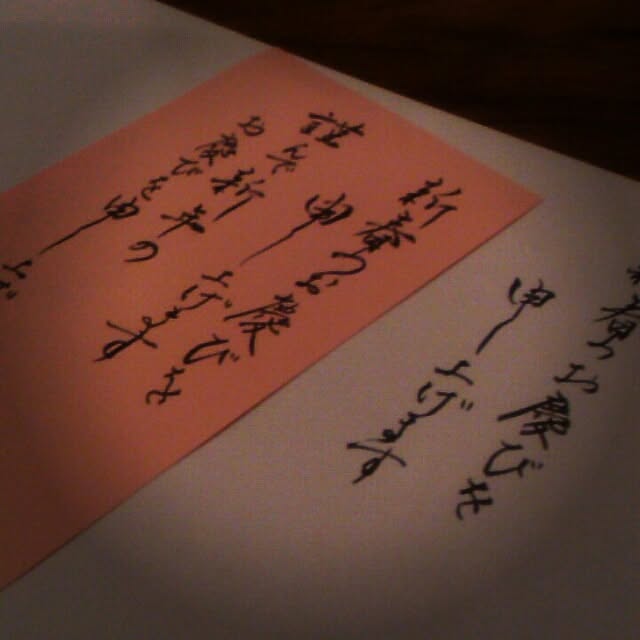 春のお慶びを
申し上げます
新春のお慶びを
申し上げます
謹んで新年の
お慶びを申し